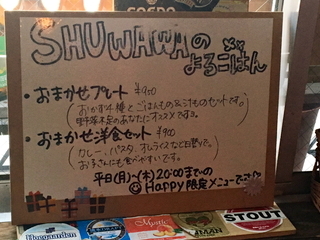 SHUWAWAの
よるごはん
・おまかせプレート ¥950
(おかず4種とごはんもの&汁ものセットです。
野菜不足のあなたにオススメです。)
・おまかせ洋食セット ¥900
(カレー、パスタ、オムライスなど日替りで。
お子さんにも食べやすいです。)
平日(月)〜(木)20:00までの
Happy限定メニューでーす!
Hoegaarden
Mystic
STOUT